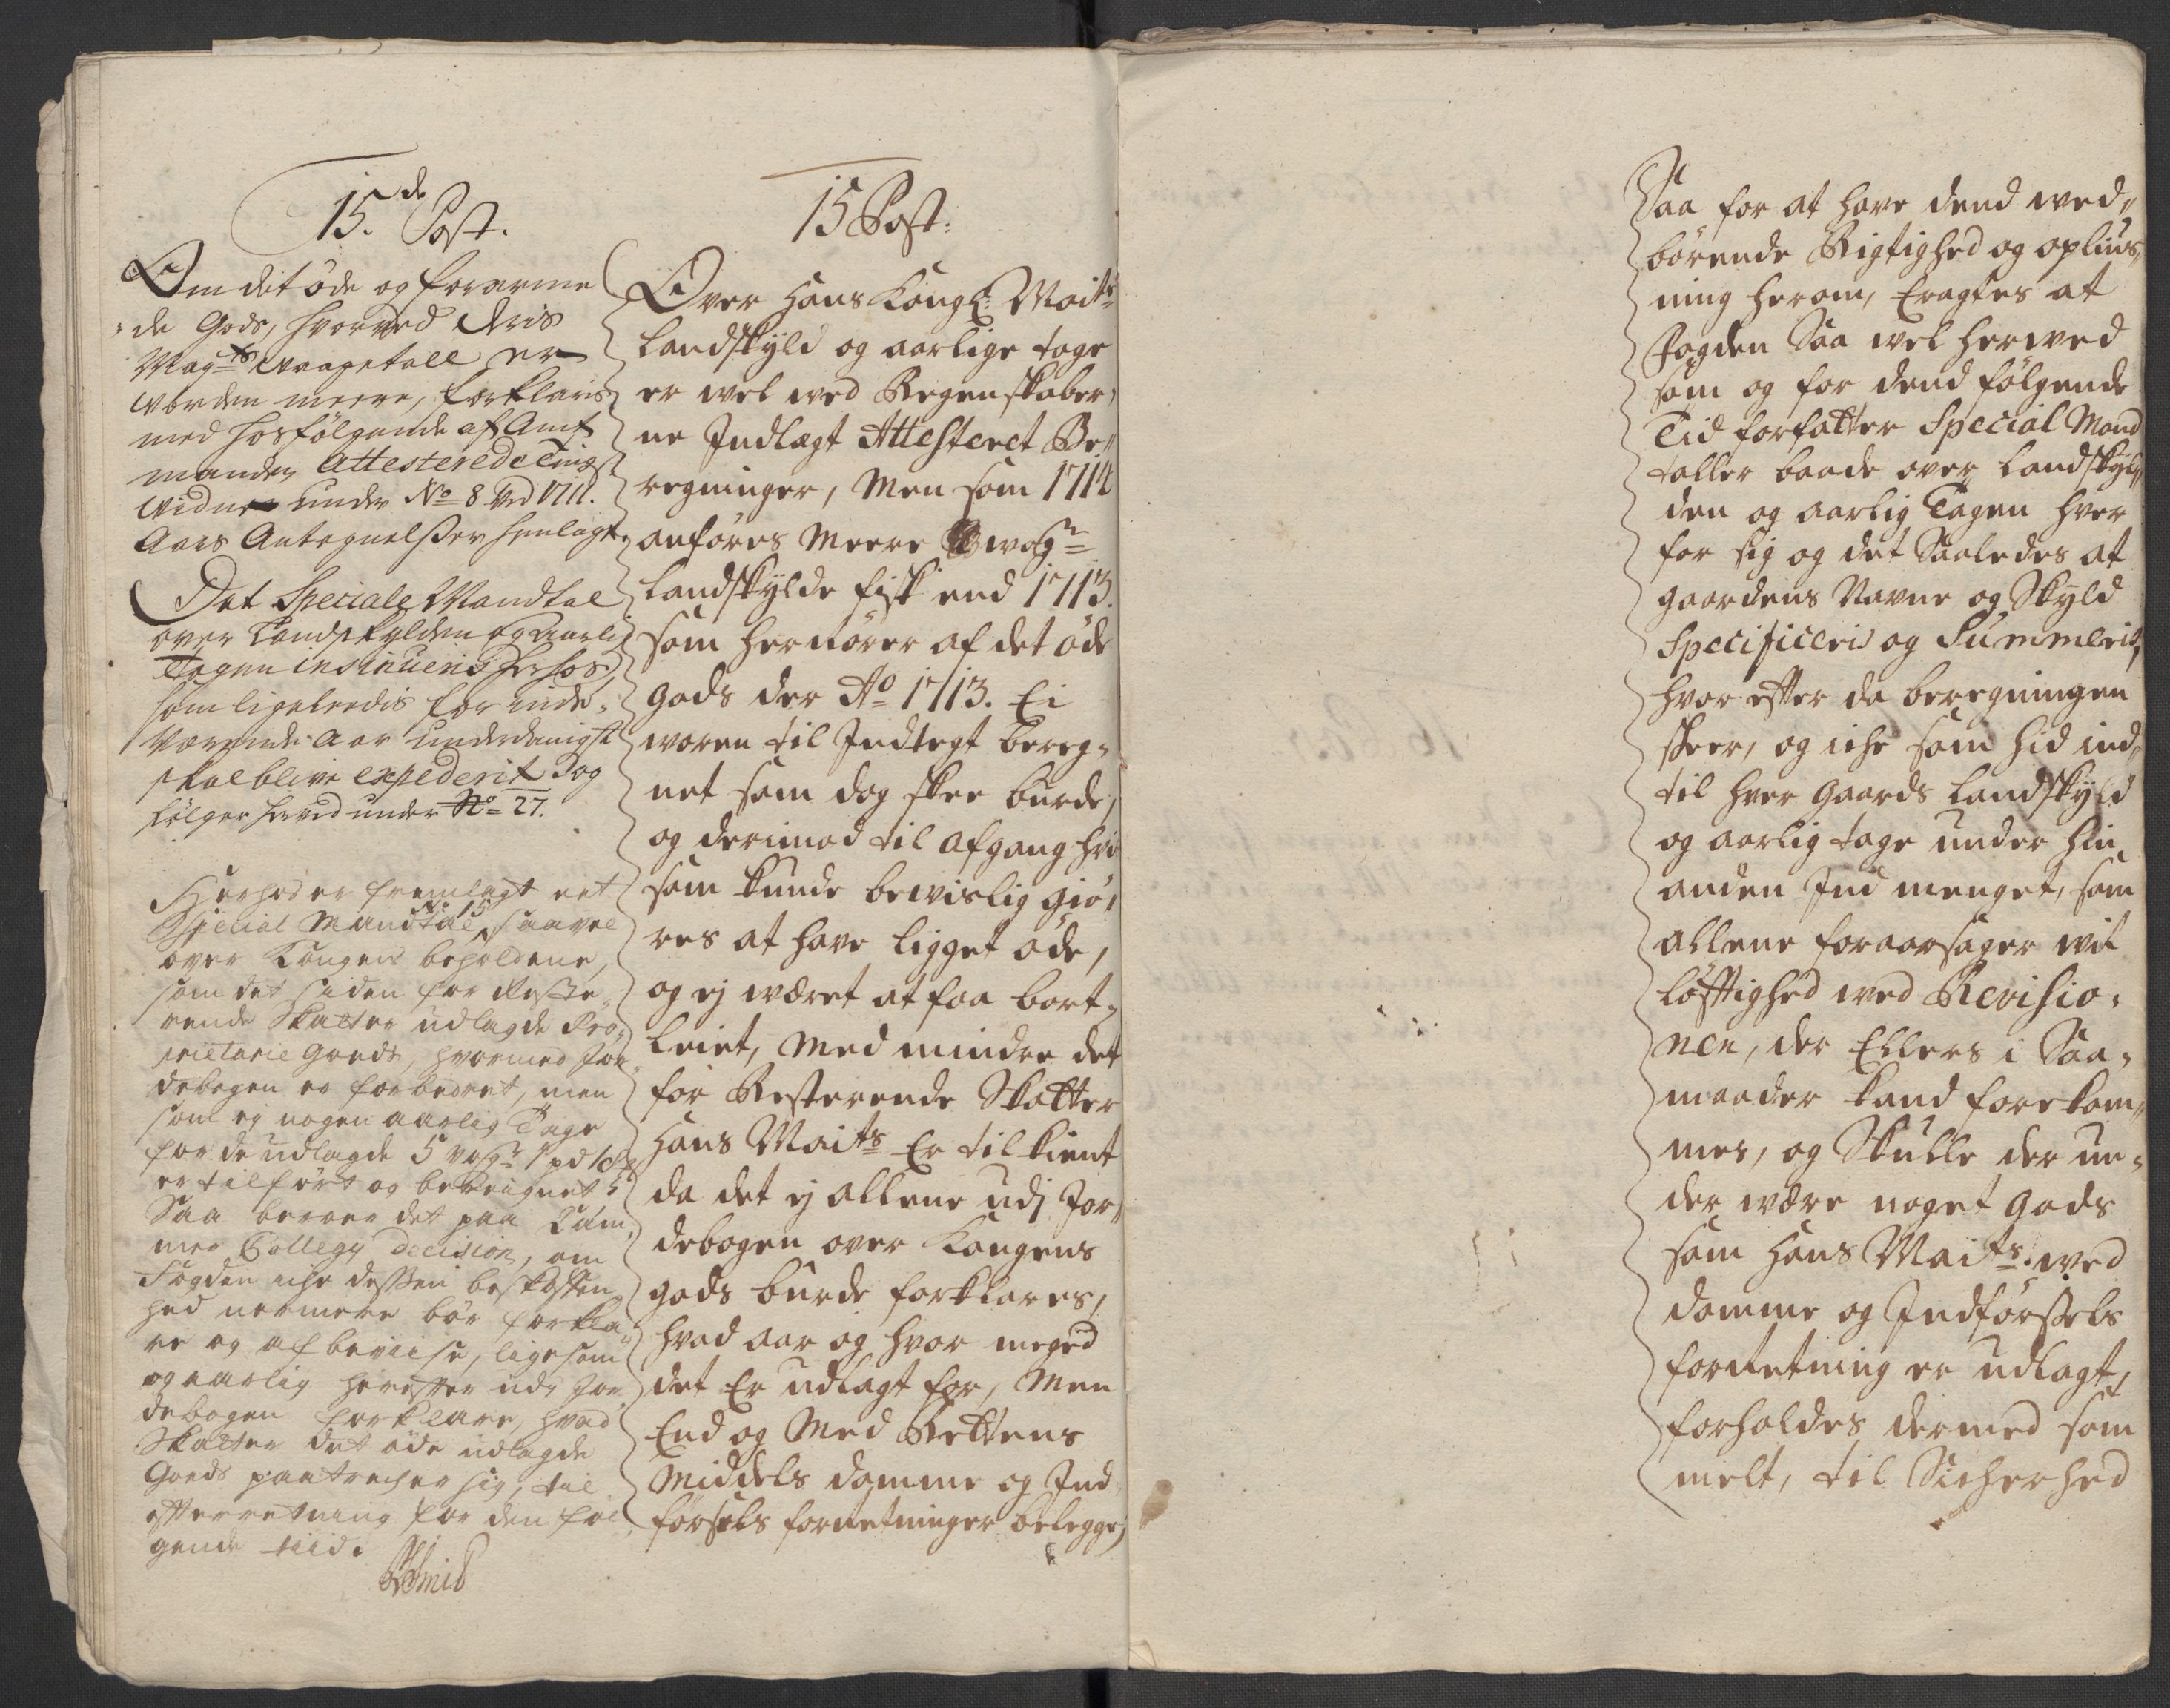 15.de Post.
Om det øde og forarme
de Gods, hvorved Kris
May:ts Waagetall er
worden meere, forklaris
med hosfølgende af Amt
manden Attesterede Tings
widner under No 8 ved 1711.
Aars Antegnelsser henlagt.
Det Speciale Mandtal
over Landskylden og aarlig
Tagen insinueris herhos,
som ligeledis for inde-
værende Aar underdanigst
skal blive expederit og
følger herved under No 27.
Herhos er fremlagt eet
Special Mandtal No 15 saavel
over Kongens beholdene,
som det siden for Reste-
rende Skatter udlagde Pro-
prietarie Gods, hvormed Jor-
debogen er forbedret, men
som ej nogen aarlig Tage
for de udlagde 5 wog:r 1 pd
er tilført og beregnet
Saa beroer det paa Cam-
mer Collegy decision, om
Fogden iche dessen beskaffen-
hed nermere bør forkla-
re og afbeviise, ligesom
og aarlig herefter udj Jor-
debogen forklare, hvad
Skatter det øde udlagde
Gods paatrecher sig, til
efterretning for den føl-
gende tiid.
Schmid
15 Post:
Over Hans Kongl: Maits
Landskyld og aarlige tage
er vel ved Regenskaber-
ne Indlagt Attesteret Be-
regninger, Men som 1714
anføres Meere wog:r
Landskylds fisk end 1713.
som herrører af det øde
Gods der Ao 1713. Ei
woren til Indtegt bereg-
net som dog skee burde,
og derimod til afgang hvis
som kunde bewislig giø-
res at have ligget øde,
og ej wæret at faa bort-
leiet, Med mindre det
for Resterende Skatter
Hans Maits Er tilkient
da det ej allene udj Jor-
debogen over Kongens
gods burde forklares,
hvad aar og hvor meged
det Er udlagt for, Men
End og Med Rettens
Middels domme og Ind-
førsels forretninger belegges,
Saa for at have dend wed-
børende Rigtighed og oplius-
ning herom, Eragtes at
Fogden Saa vel herved
som og for dend følgende
Tid forfatter Special Mand
taller baade over Landskyl-
den og aarlig Tagen hver
for sig og det Saaledes at
gaardens Navne og Skyld
Specificeris og Summeris,
hvor efter da beregningen
skeer, og iche som hid ind-
til hver Gaards Landskyld
og aarlig tage under hin-
anden Ind menget, som
allene foraarsager wit
løfftighed wed Revisio-
nen, der Ellers i Saa-
maader kand forekom-
mes, og Skulle der un-
der være noget Gods
som Hans Maits. wed
domme og Indførssels
forretning er udlagt,
forholdes dermed som
melt, til Sicherhed